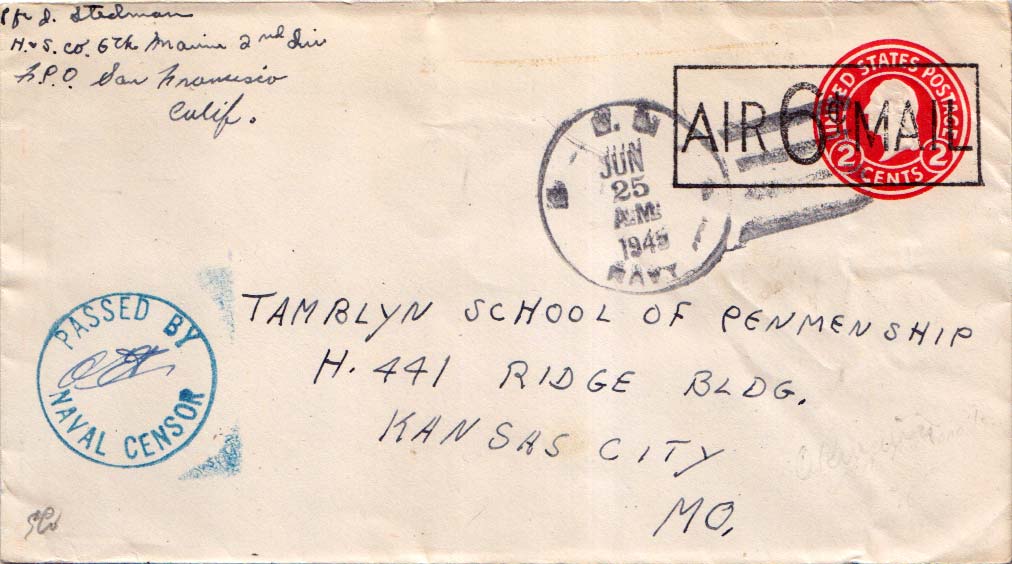 Pfc J. Stedman
H.&S. Co. 6th Marine 2nd Div
F.P.O. San Francisco
Calif.
UNITED STATES POSTAGE
2 CENTS 2
AIR 6¢ MAIL
JUN
25
A.M.
1945
NAVY
PASSED BY
NAVAL CENSOR
TAMBLYN SCHOOL OF PENMENSHIP
H. 441 RIDGE BLDG.
KANSAS CITY
MO.